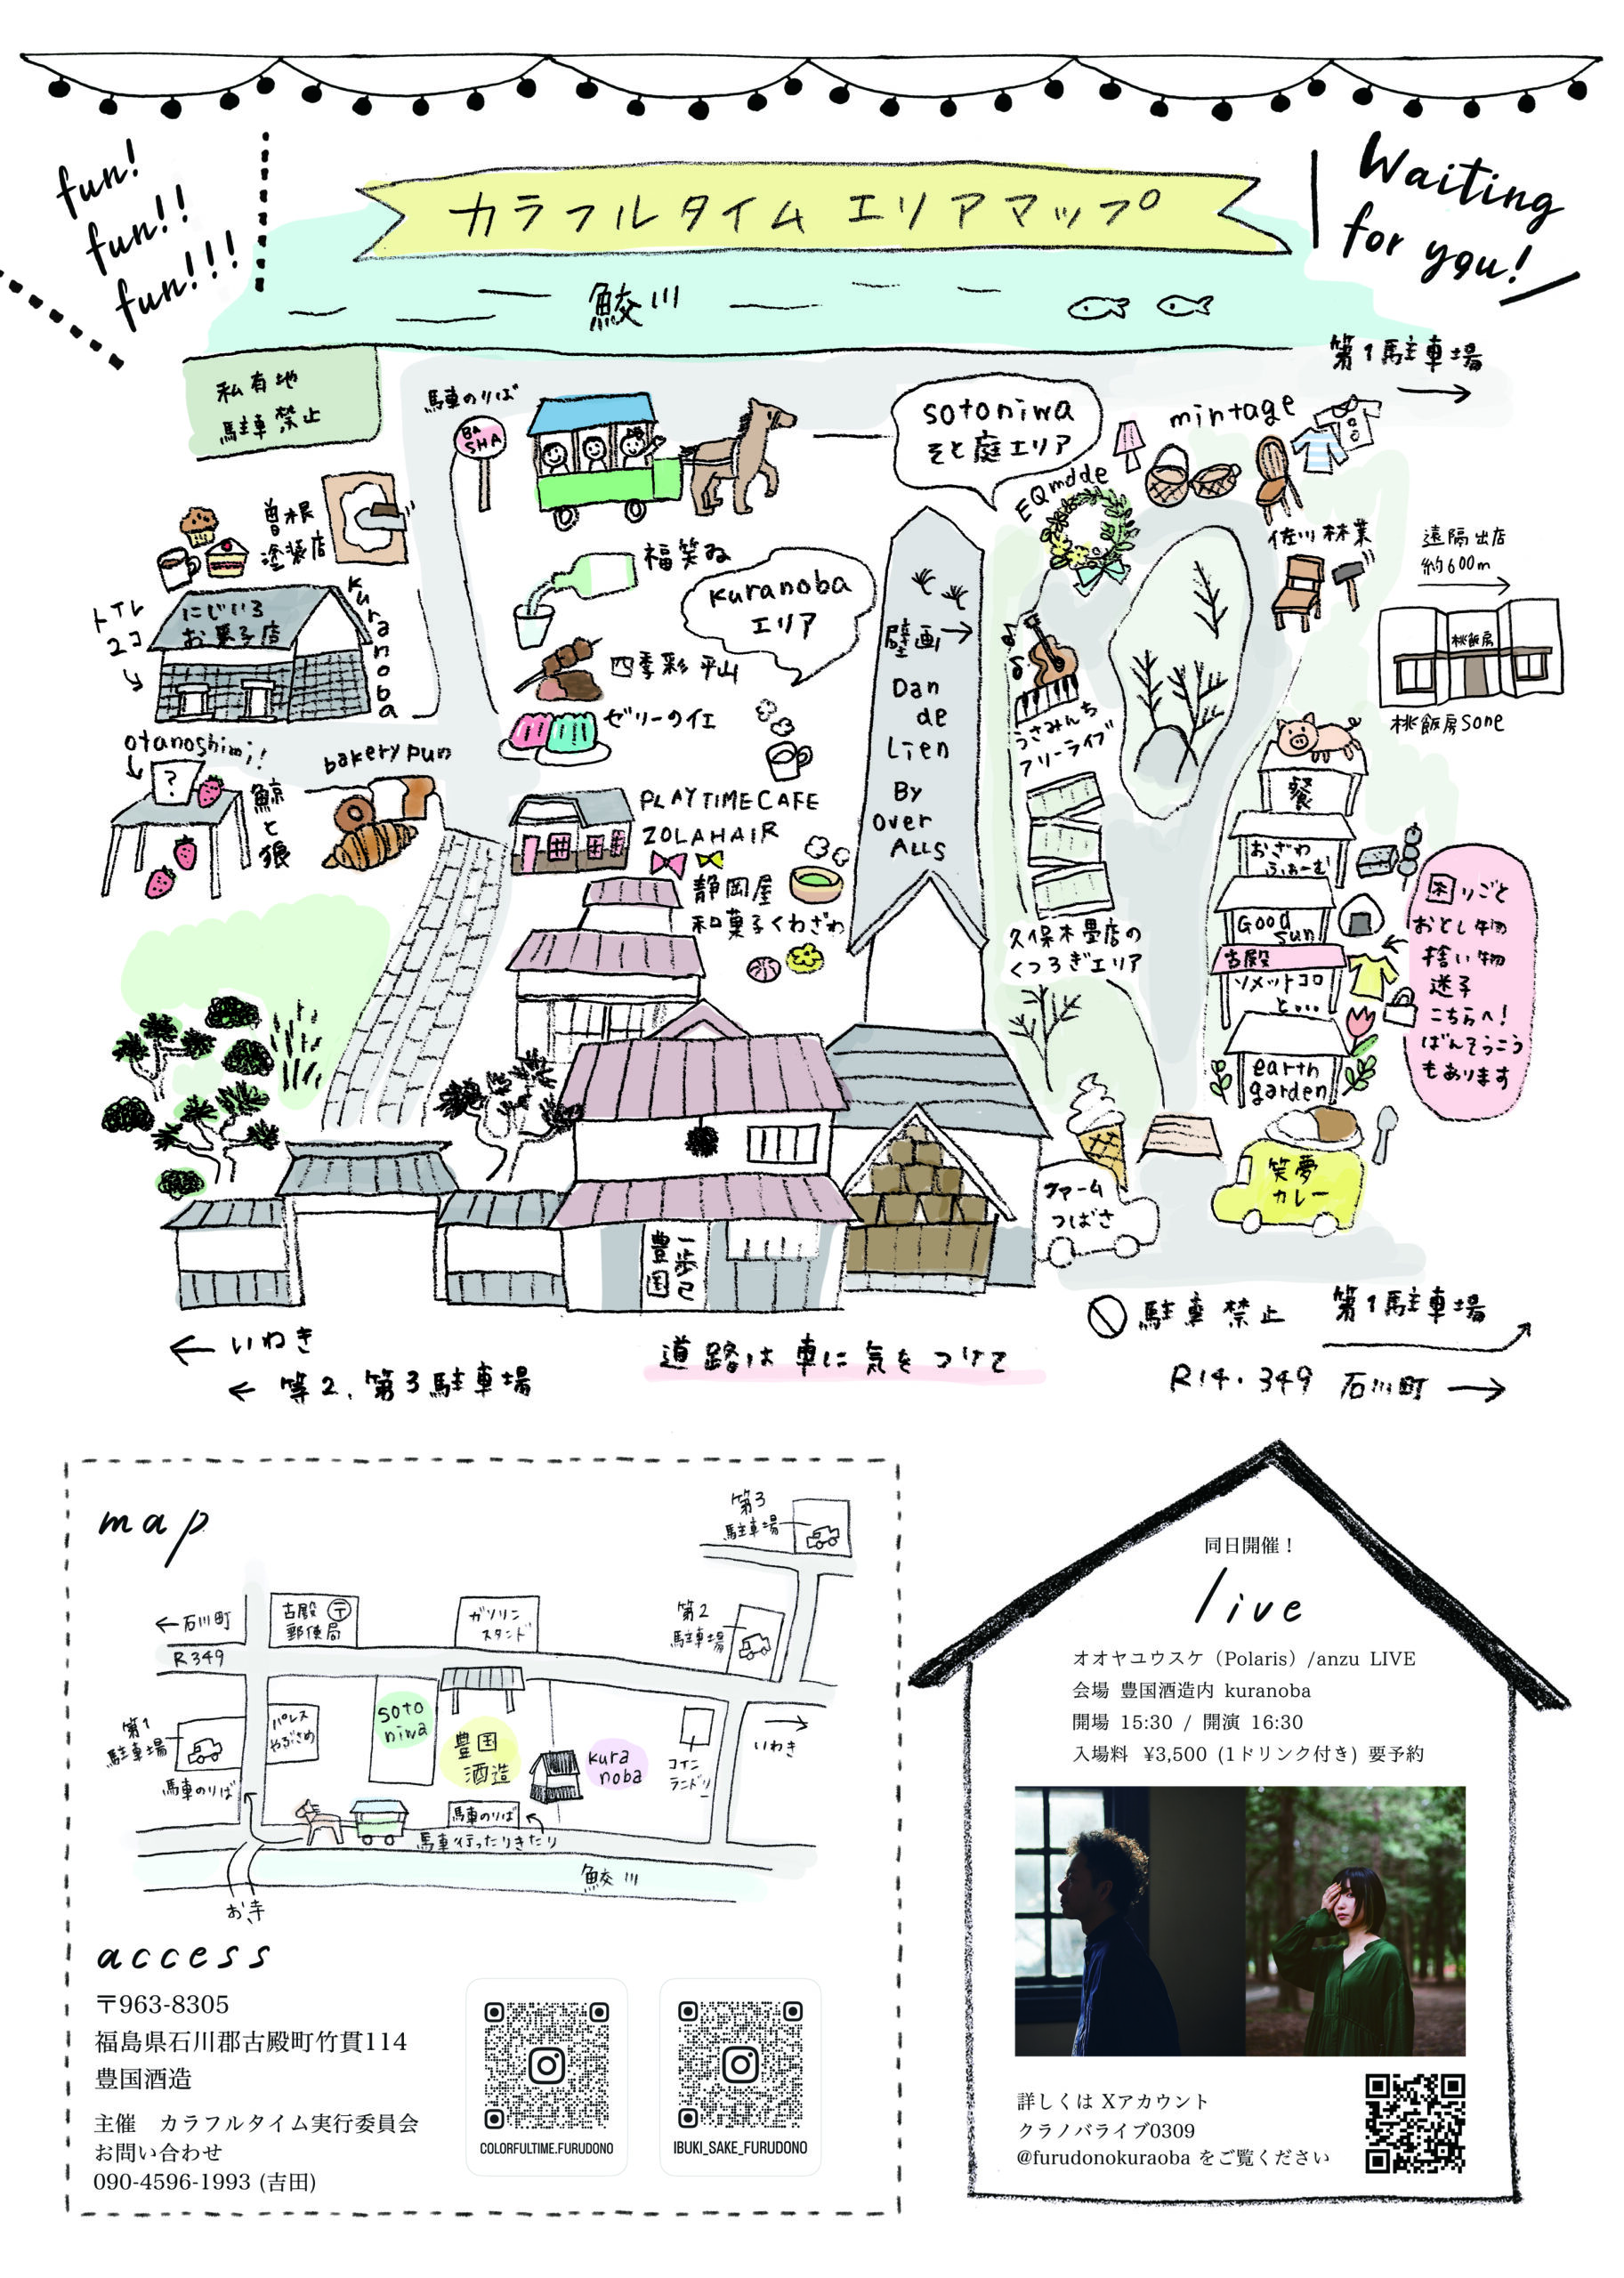 fun!
fun!!
fun!!!
カラフルタイム エリアマップ
Waiting
for you!
鮫川
第1駐車場
私有地
駐車禁止
馬車のりば
BA
SHA
sotoniwa
そと庭エリア
mintage
EQmdde
曽根
塗装店
福笑ゐ
kuranoba
エリア
佐川林業
遠隔出店
約600m
トイレ
2コ
にじいろ
お菓子店
kuranoba
四季彩 平山
壁画→
Dan
de
Lien
By
Over
ALLs
桃飯房
桃飯房sone
ゼリーのイエ
うさみんち
フリーライブ
otanoshimi!
?
鯨と狼
bakery pun
PLAYTIMECAFE
ZOLAHAIR
静岡屋
和菓子くわざわ
餐
おざわ
ふぁーむ
Good
sun
古殿
ソメットコロ
と...
earth
garden
困りごと
おとし物
拾い物
迷子
こちらへ!
ばんそうこう
もあります
久保木畳店の
くつろぎエリア
ファーム
つばさ
笑夢
カレー
豊国
一歩己
← いわき
← 第2、第3駐車場
道路は車に気をつけて
駐車禁止
第1駐車場
R14・349 石川町 →
map
第3
駐車場
←石川町
古殿
郵便局
〒
ガソリン
スタンド
第2
駐車場
R349
第1
駐車場
パレス
やぶさめ
soto
niwa
豊国
酒造
kura
noba
コイン
ランドリー
いわき
馬車のりば
馬車のりば
馬車行ったりきたり
鮫川
お寺
access
〒963-8305
福島県石川郡古殿町竹貫114
豊国酒造
主催　カラフルタイム実行委員会
お問い合わせ
090-4596-1993 (吉田)
COLORFULTIME.FURUDONO
IBUKI_SAKE_FURUDONO
同日開催！
live
オオヤユウスケ（Polaris）/anzu LIVE
会場 豊国酒造内 kuranoba
開場 15:30 / 開演 16:30
入場料 ¥3,500 (1ドリンク付き) 要予約
詳しくは Xアカウント
クラノバライブ0309
@furudonokuraoba をご覧ください